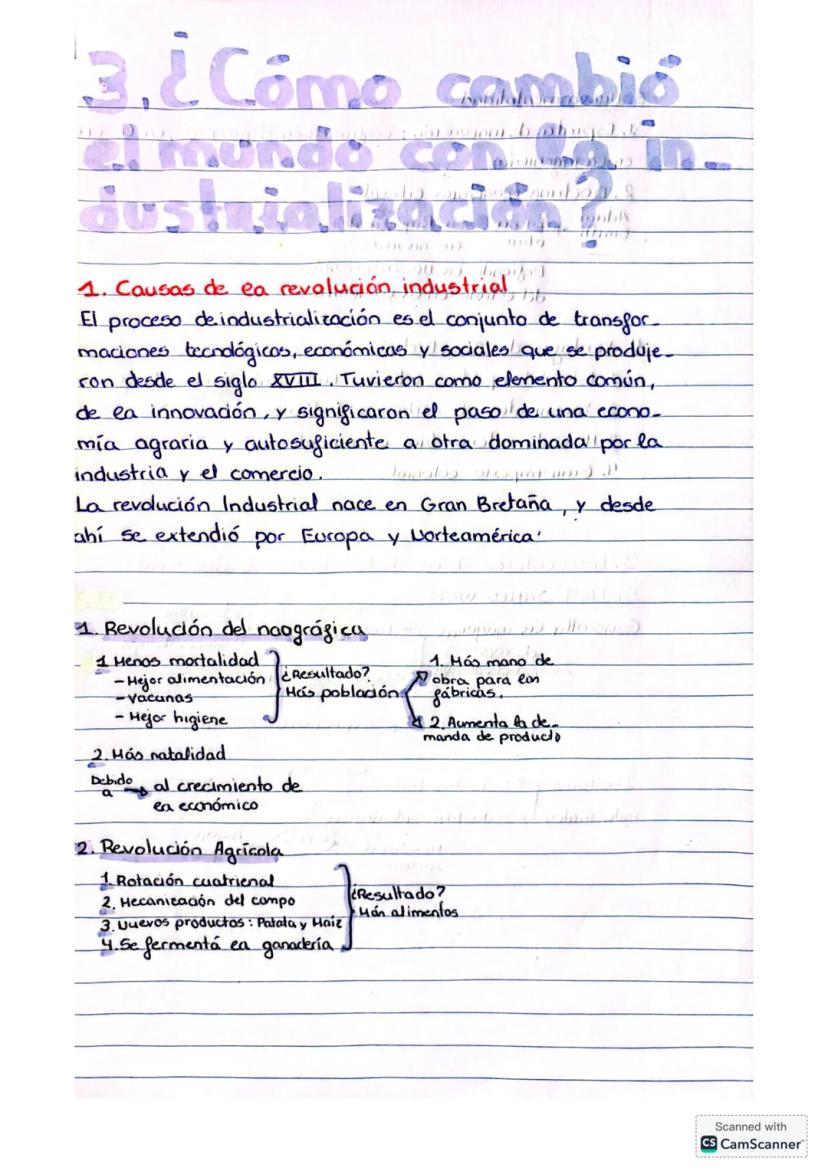 3. ¿Cómo cambió
el mundo con la in-
dustrialización?
1. Causas de la revolución industrial
El proceso de industrialización es el conjunto de transfor-
maciones tecnológicos, económicas y sociales que se produje-
ron desde el siglo XVIII. Tuvieron como elemento común,
de la innovación, y significaron el paso de una econo-
mía agraria y autosuficiente a otra dominada por la
industria y el comercio.
La revolución Industrial nace en Gran Bretaña, y desde
ahí se extendió por Europa y Norteamérica.
1. Revolución del naográgica
1 Menos mortalidad
- Mejor alimentación
- Vacunas
- Mejor higiene
¿Resultado?
Más población
1. Más mano de
obra para las
fábricas.
2. Aumenta la de-
manda de producto
2. Más natalidad
Debido
a al crecimiento de
la económico
2. Revolución Agrícola
1. Rotación cuatrienal
2. Mecanización del campo
3. Nuevos productos: Patata y Maíz
4. Se fermentá la ganadería
¿Resultado?
Más alimentos
Scanned with
CS CamScanner